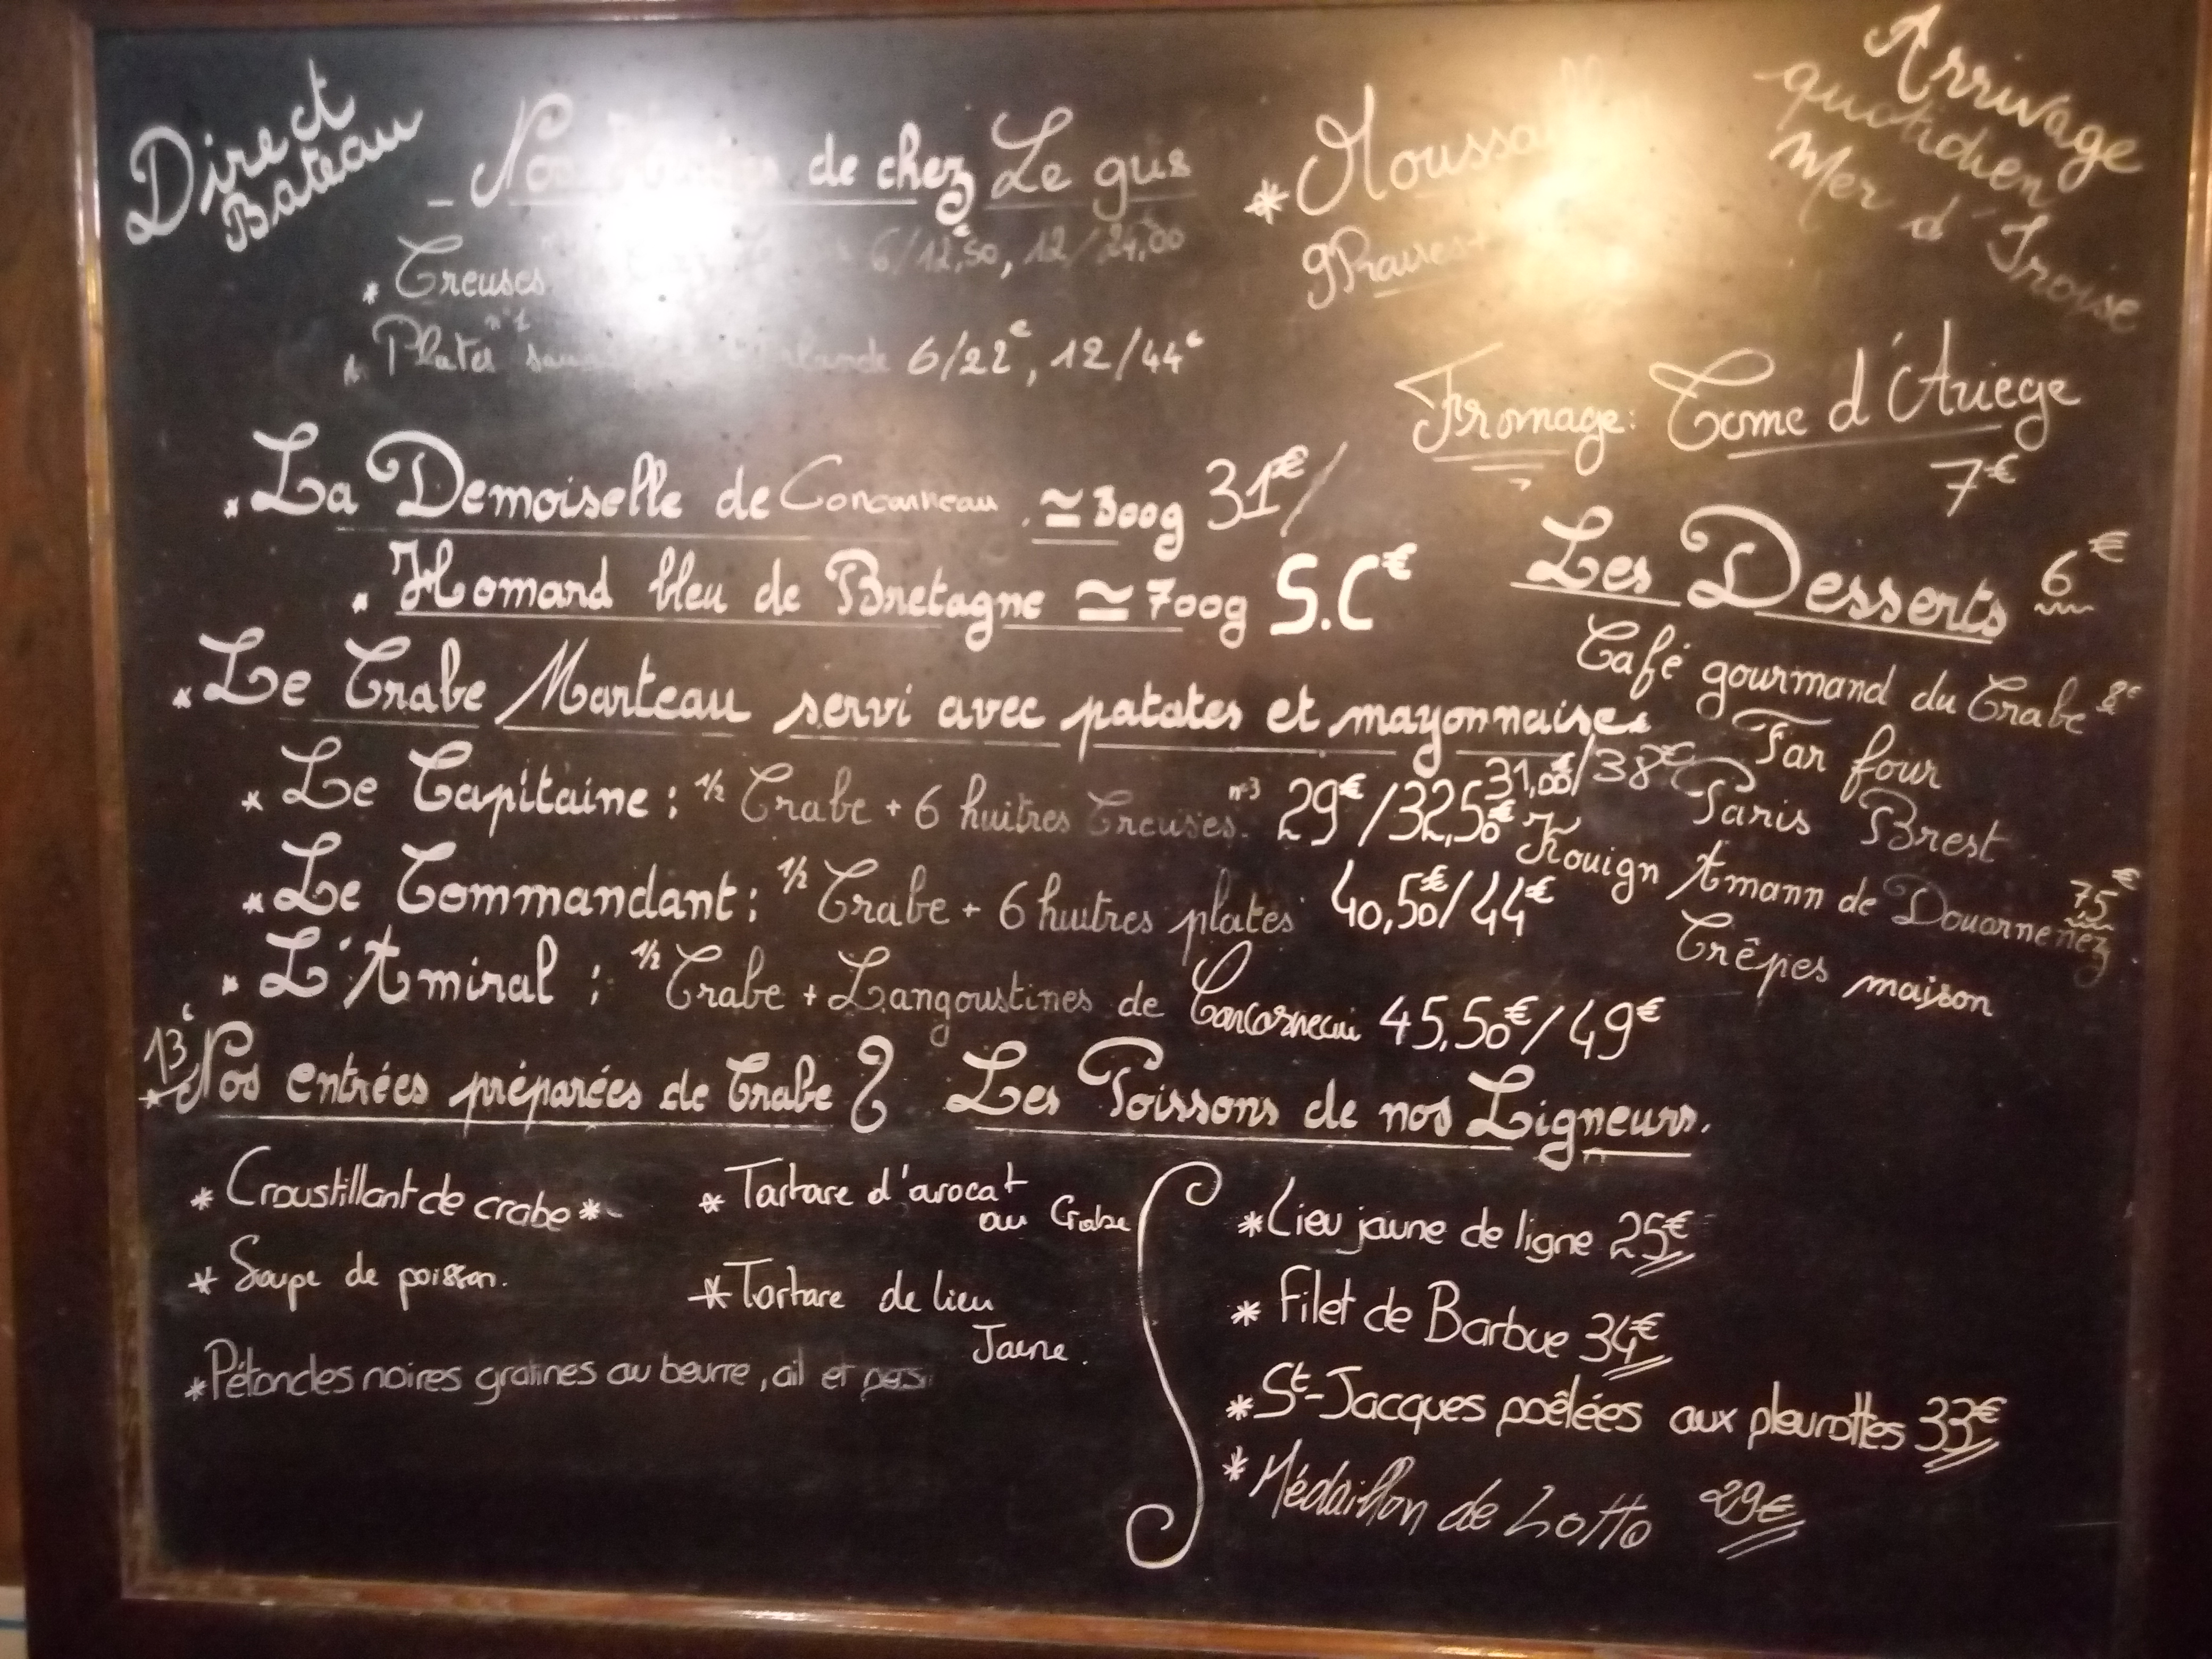 Direct
Bateau
Arrivage
quotidien
Mer d'Iroise
_ de chez Le gus
* Creuses 6/12,50, 12/24,00
* Plates n°1 6/22€, 12/44€
*
9 Praires
Fromage: Tome d'Ariege
7€
* La Demoiselle de Concarneau. ≃ 300g 31€/
* Homard bleu de Bretagne ≃ 700g S.C€
* Le Crabe Marteau servi avec patates et mayonnaise.
31,00€/38€
* Le Capitaine : 1/2 Crabe + 6 huitres Creuses. n°3 29€/32,50€
* Le Commandant : 1/2 Crabe + 6 huitres plates 40,50€/44€
* L'Amiral : 1/2 Crabe + Langoustines de Concarneau 45,50€/49€
Les Desserts 6€
Café gourmand du Crabe 8€
Far four
Paris Brest
Kouign Amann de Douarnenez 7,5€
Crêpes maison
13€
* Nos entrées préparées de Crabe
* Croustillant de crabe *
* Soupe de poisson.
* Pétoncles noires gratines au beurre, ail et
* Tartare d'avocat
au Crabe
* Tartare de lieu
Jaune.
Les Poissons de nos Ligneurs.
* Lieu jaune de ligne 25€
* Filet de Barbue 34€
* St-Jacques poêlées aux pleurottes 33€
* Médaillon de Lotte 29€